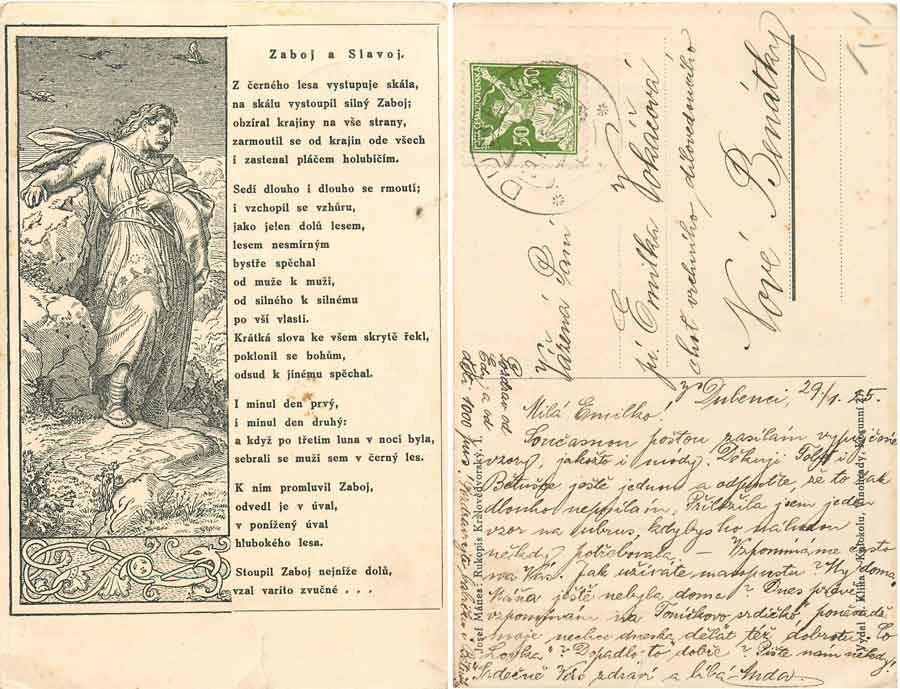 Zaboj a Slavoj.
Z černého lesa vystupuje skála,
na skálu vystoupil silný Zaboj;
obzíral krajiny na vše strany,
zarmoutil se od krajin ode všech
i zastenal pláčem holubičím.
Sedí dlouho i dlouho se rmoutí;
i vzchopil se vzhůru,
jako jelen dolů lesem,
lesem nesmírným
bystře spěchal
od muže k muži,
od silného k silnému
po vší vlasti.
Krátká slova ke všem skrytě řekl,
poklonil se bohům,
odsud k jinému spěchal.
I minul den prvý,
i minul den druhý:
a když po třetím luna v noci byla,
sebrali se muži sem v černý les.
K nim promluvil Zaboj,
odvedl je v úval,
v ponížený úval
hlubokého lesa.
Stoupil Zaboj nejníže dolů,
vzal varito zvučné . . .
50 50
Vážená Paní
pí. Emilka Vokáčová
choť vrchního
Nové Benátky
Josef Mánes: Rukopis Královédvorský, 1.
Vydal J. Klika Knihkupec, Vinohrady, Korunní
Dubenci, 29/1. 25.
Milá Emilko!
Současnou poštou zasílám vypůjčené
vzory, jakožto i módy. Děkuji
ještě jednou a odpusťte, že to tak
dlouho Přiložila jsem jeden
vzor na ubrus, kdybys ho náhodou
někdy potřebovala. – Vzpomínáme často
na Vás. Jak užíváte masopustu? Vy doma?
Máňa ještě nebyla doma? Dnes právě
vzpomínám na Toníčkovo srdíčko, poněvadž
moje nechce dneska dělat též dobrotu. Co
Dopadlo to dobře? Pište nám někdy!
Srdečně Vás zdraví a líbá Anda.
Pozdrav od